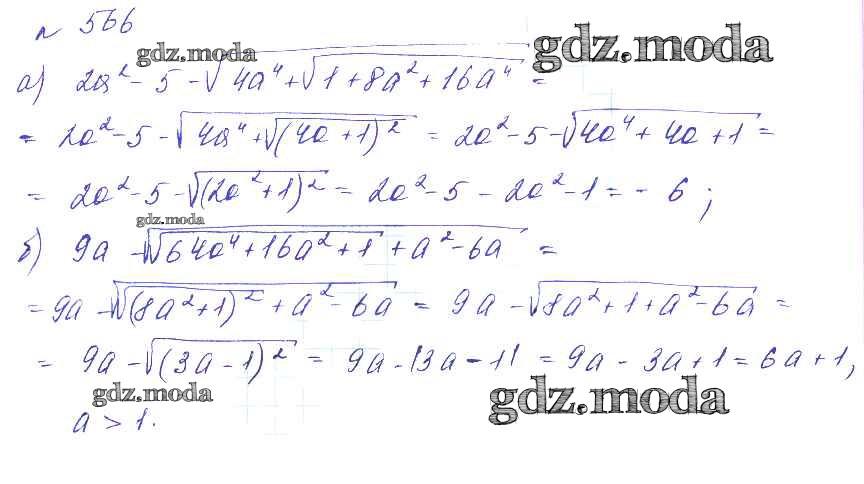 № 566
gdz.moda gdz.moda
а) 2a² - 5 - √(4a⁴ + √(1 + 8a² + 16a⁴)) =
= 2a² - 5 - √(4a⁴ + √((4a + 1)²)) = 2a² - 5 - √(4a⁴ + 4a + 1) =
= 2a² - 5 - √((2a² + 1)²) = 2a² - 5 - 2a² - 1 = - 6 ;
gdz.moda
б) 9a - √(√(64a⁴ + 16a² + 1) + a² - 6a) =
= 9a - √(√((8a² + 1)²) + a² - 6a) = 9a - √(8a² + 1 + a² - 6a) =
= 9a - √((3a - 1)²) = 9a - |3a - 1| = 9a - 3a + 1 = 6a + 1,
gdz.moda gdz.moda
a > 1.